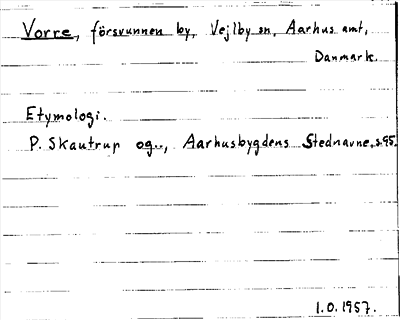 Vorre, försvunnen by, Vejlby sn, Aarhus amt,
Danmark.
Etymologi.
P. Skautrup og.., Aarhusbygdens Stednavne, s. 95.
1.0.1957.